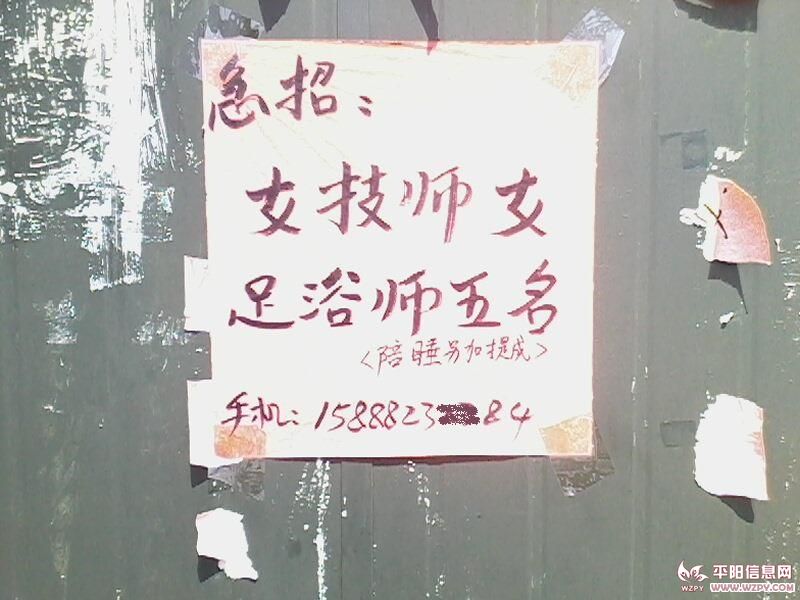 急招：
女技师女
足浴师五名
<陪睡另加提成>
手机：1588823 84
平阳信息网
WZPY WWW.WZPY.COM